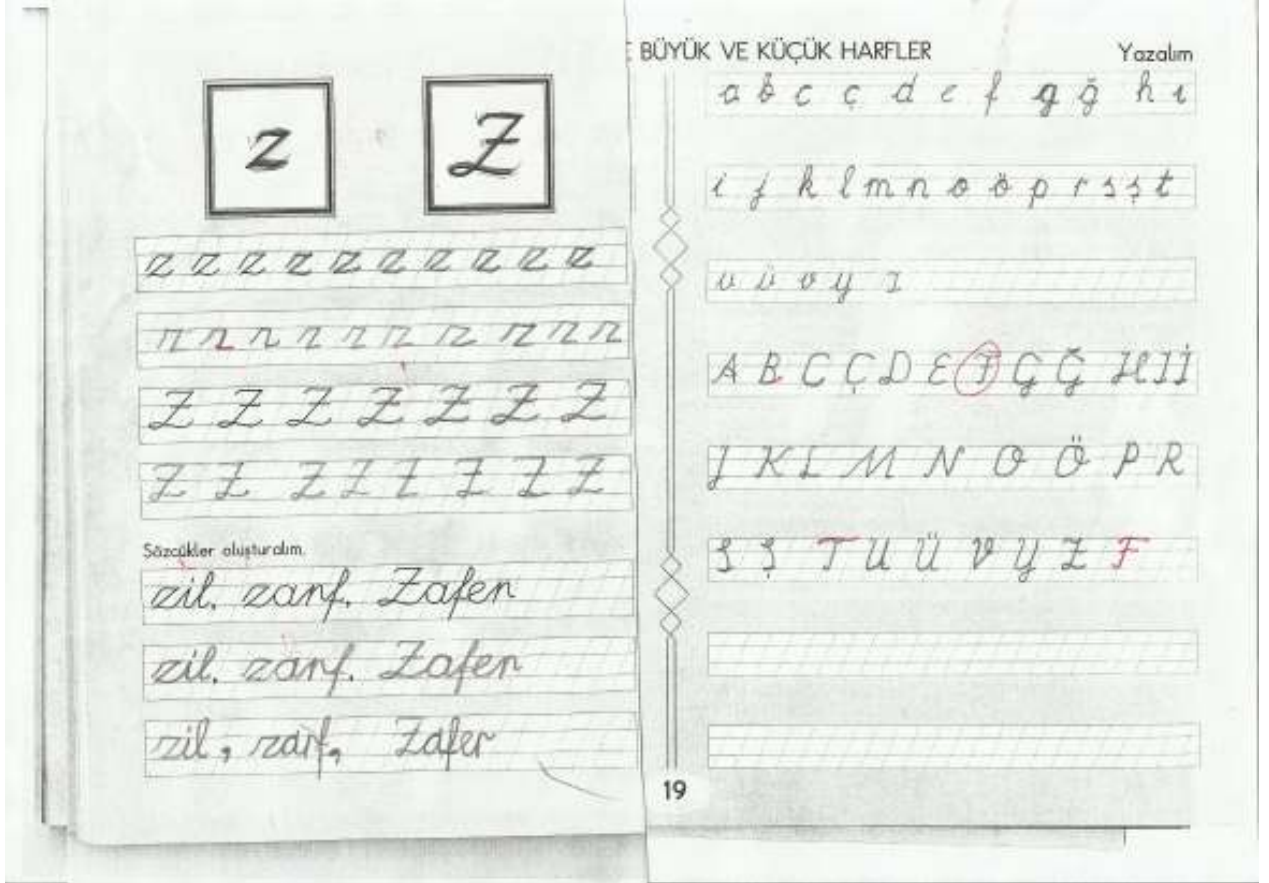 z Z
z z z z z z z z z z
z z z z z z z z z z
Z Z Z Z Z Z Z
Z Z Z Z Z Z Z Z
Sözcükler oluşturalım.
zil, zarf, Zafer
zil, zarf, Zafer
zil, zarf, Zafer
BÜYÜK VE KÜÇÜK HARFLER
Yazalım
a b c ç d e f g ğ h ı
i j k l m n o ö p r s ş t
u ü v y z
A B C Ç D E F G Ğ H I İ
J K L M N O Ö P R
S Ş T U Ü V Y Z F
19